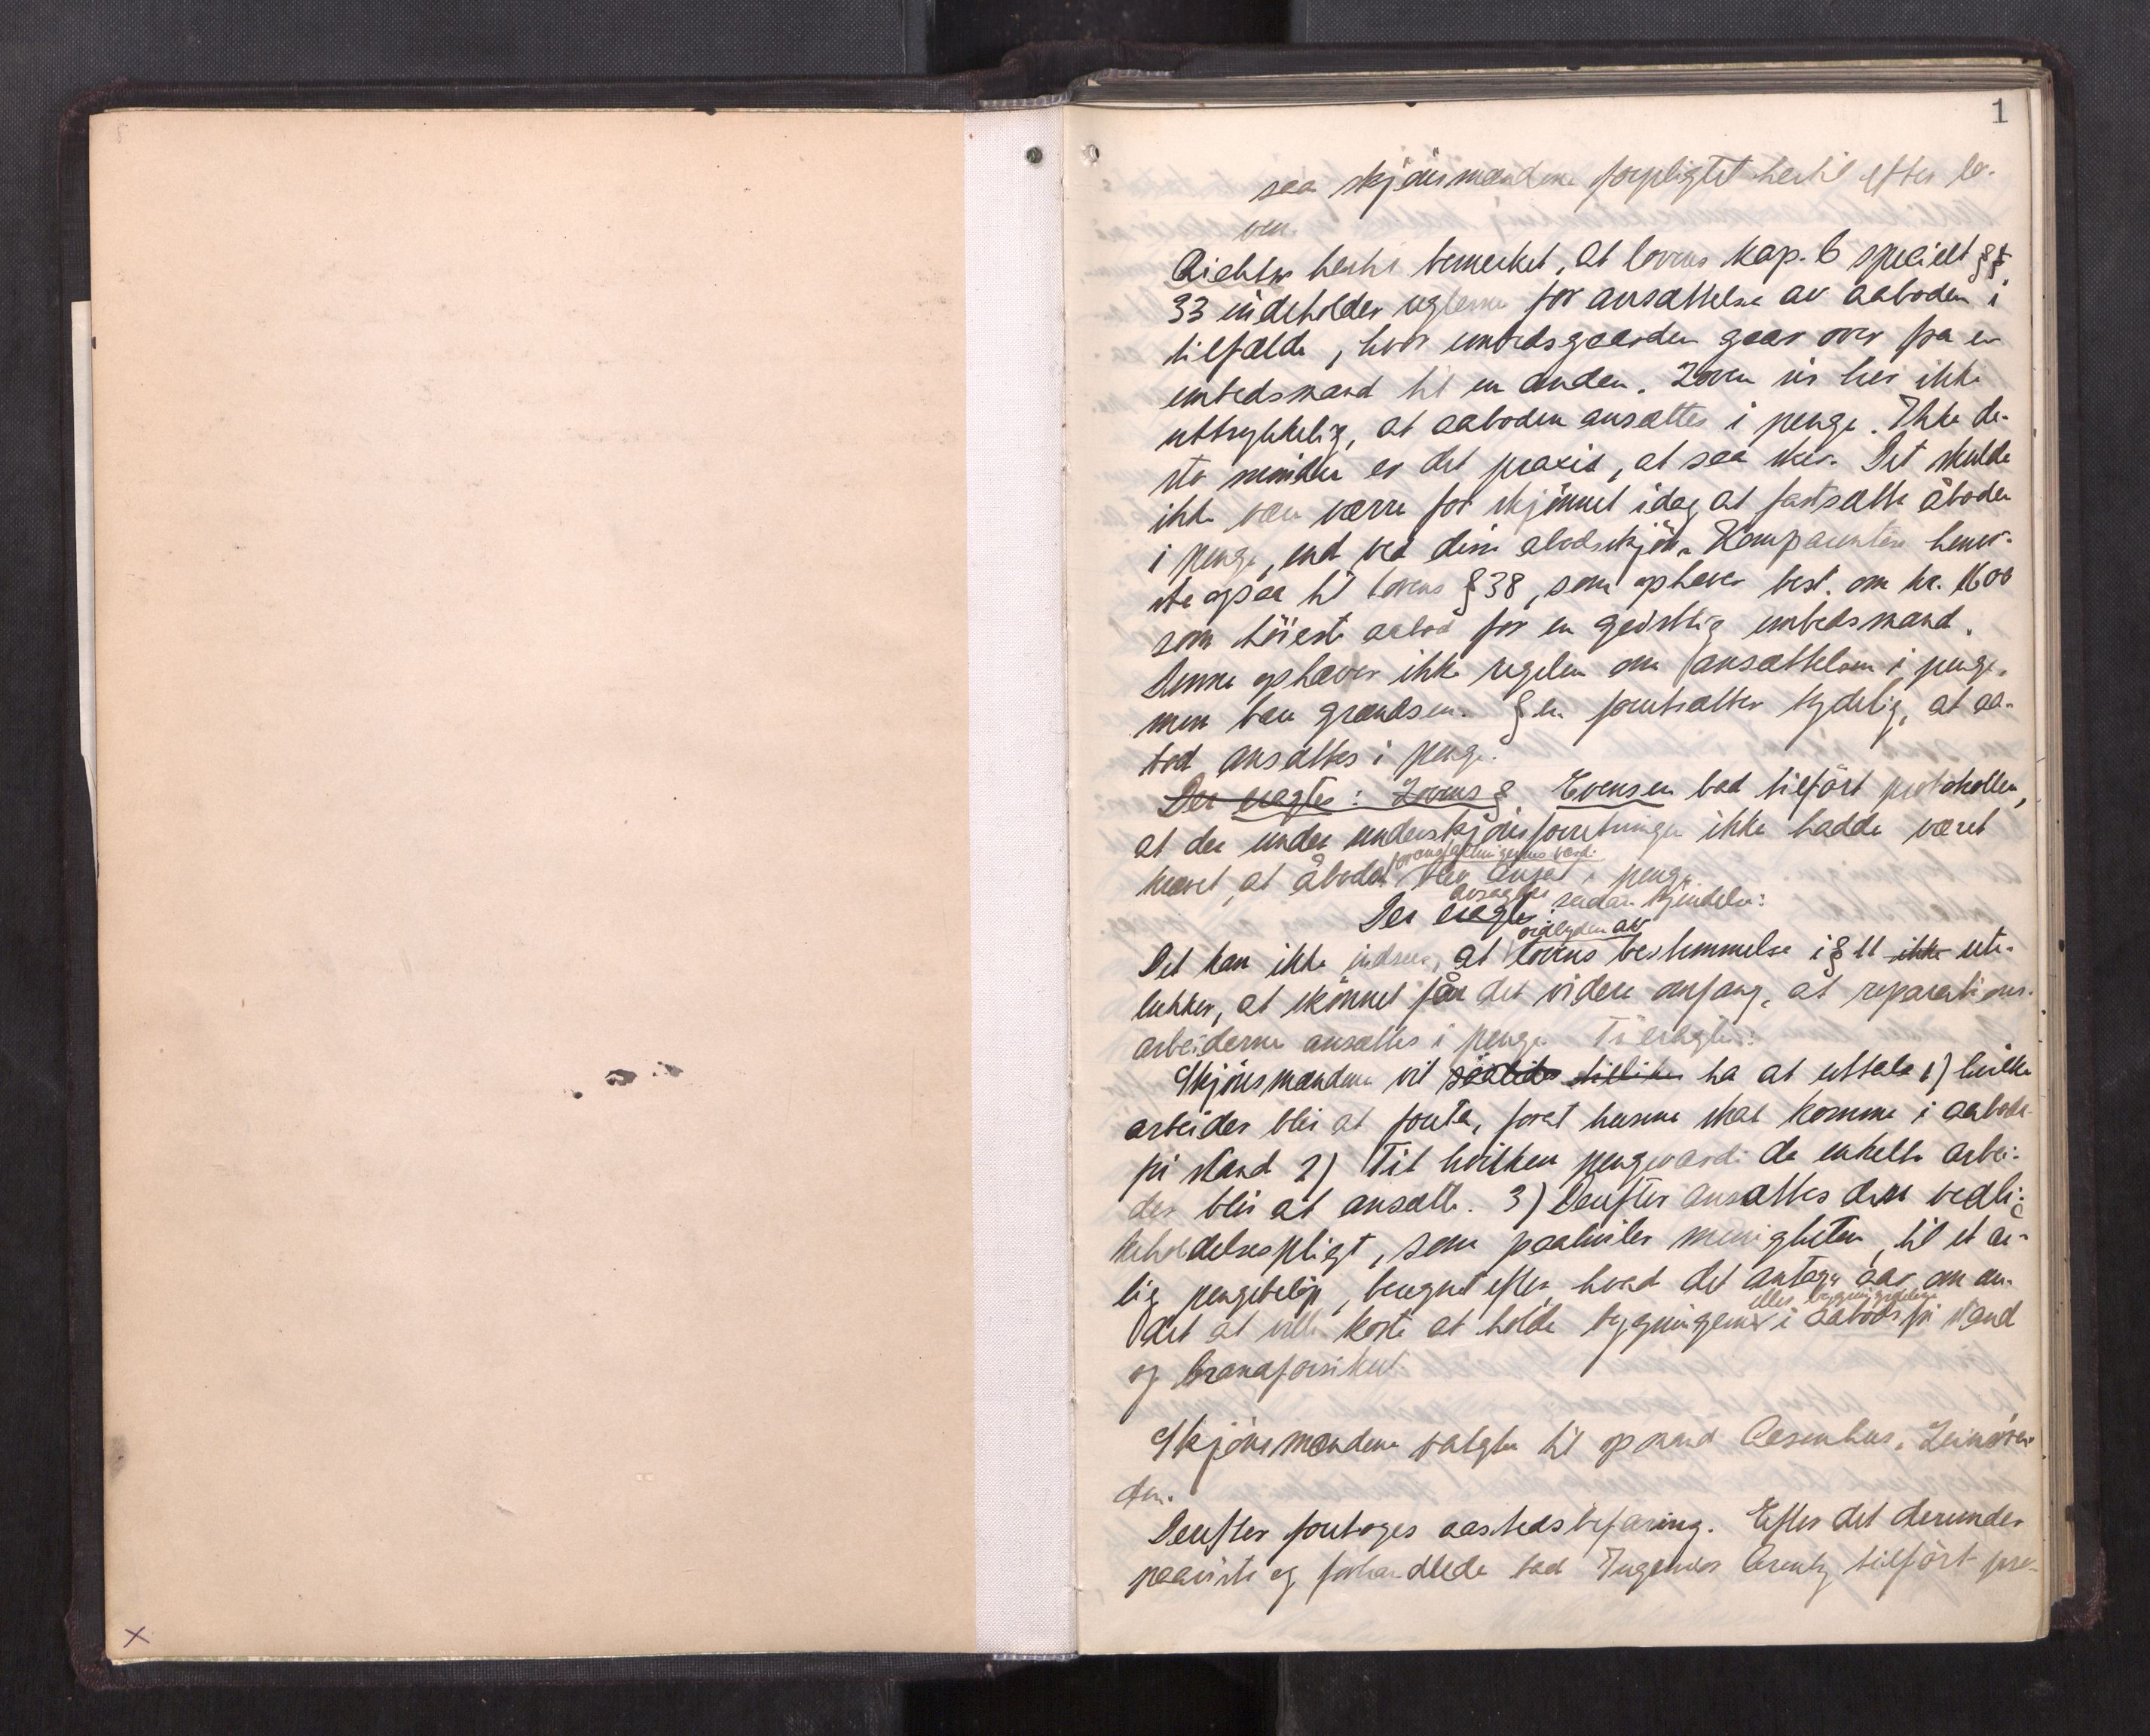 1
saa skjönsmændene forpligtet hertil efter lo-
ven.
hertil bemerket, at lovens kap. 6 specielt §§
33 indeholder reglerne for ansættelse av aaboden i
tilfælde, hvor embedsgaarden gaar over fra en
embedsmand til en anden. Loven sier her ikke
uttrykkelig, at aaboden ansættes i penge. Ikke de-
sto mindre er det praxis, at saa sker. Det skulde
ikke være værre for skjönnet idag at fastsætte åboden
i penge, end ved disse abodsskjön. Komparenten henvi-
ste ogsaa til lovens § 38, som ophever best. om kr. 1600
som höieste aabod for en geistlig embedsmand.
Denne ophæver ikke regelen om ansættelsen i penge,
men bare grændsen. §en forutsætter tydelig, at aa-
bod ansættes i penge.
Der eragtes: Lovens § Evensen bad tilfört protokollen,
at der under underskjönsforretningen ikke hadde været
krævet, at åboden blev ansat i penge
avsagdes
Der eragtes saadan kjendelse:
ordlyden av
Det kan ikke indsees, at lovens bestemmelse i § 11 ikke ute-
lukker, at skönnet får det videre omfang, at reparations-
arbeiderne ansættes i penge Ti eragtes:
Skjönsmændene vil saaledes tillike ha at uttale 1) hvilke
arbeider blir at foreta, forat husene skal komme i aabods-
fri stand 2) Til hvilken pengeværdi de enkelte arbei-
der blir at ansætte. 3) Derefter ansættes den vedli-
keholdelsespligt, som paahviler menigheten, til et aar-
lig pengebelöp, beregnet efter, hvad det antages aar om an-
eller bygningsdelene
det at ville koste at holde bygningene i aabodsfri stand
og brandforsikret.
Skjönsmændene valgte til opmand Aasenhus, Leinstran-
den.
Derefter foretoges aastedsbefaring. Efter det derunder
paaviste og forhandlede bad Ingeniör Arentz tilfört pro-